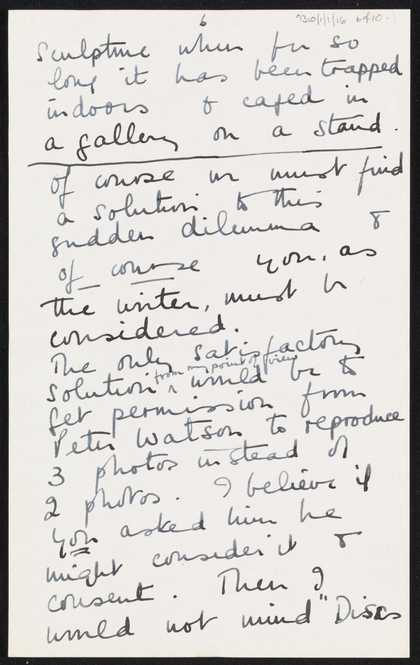 6
7310/1/1/16 6 of 10
Sculpture when for so
long it has been trapped
indoors & caged in
a gallery on a stand.
Of course we must find
a solution to this
sudden dilemma &
of course you, as
the writer, must be
considered.
The only satisfactory
from my point of view
solution ^ would be to
get permission from
Peter Watson to reproduce
3 photos instead of
2 photos. I believe if
you asked him he
might consider it &
consent. Then I
would not mind "Discs